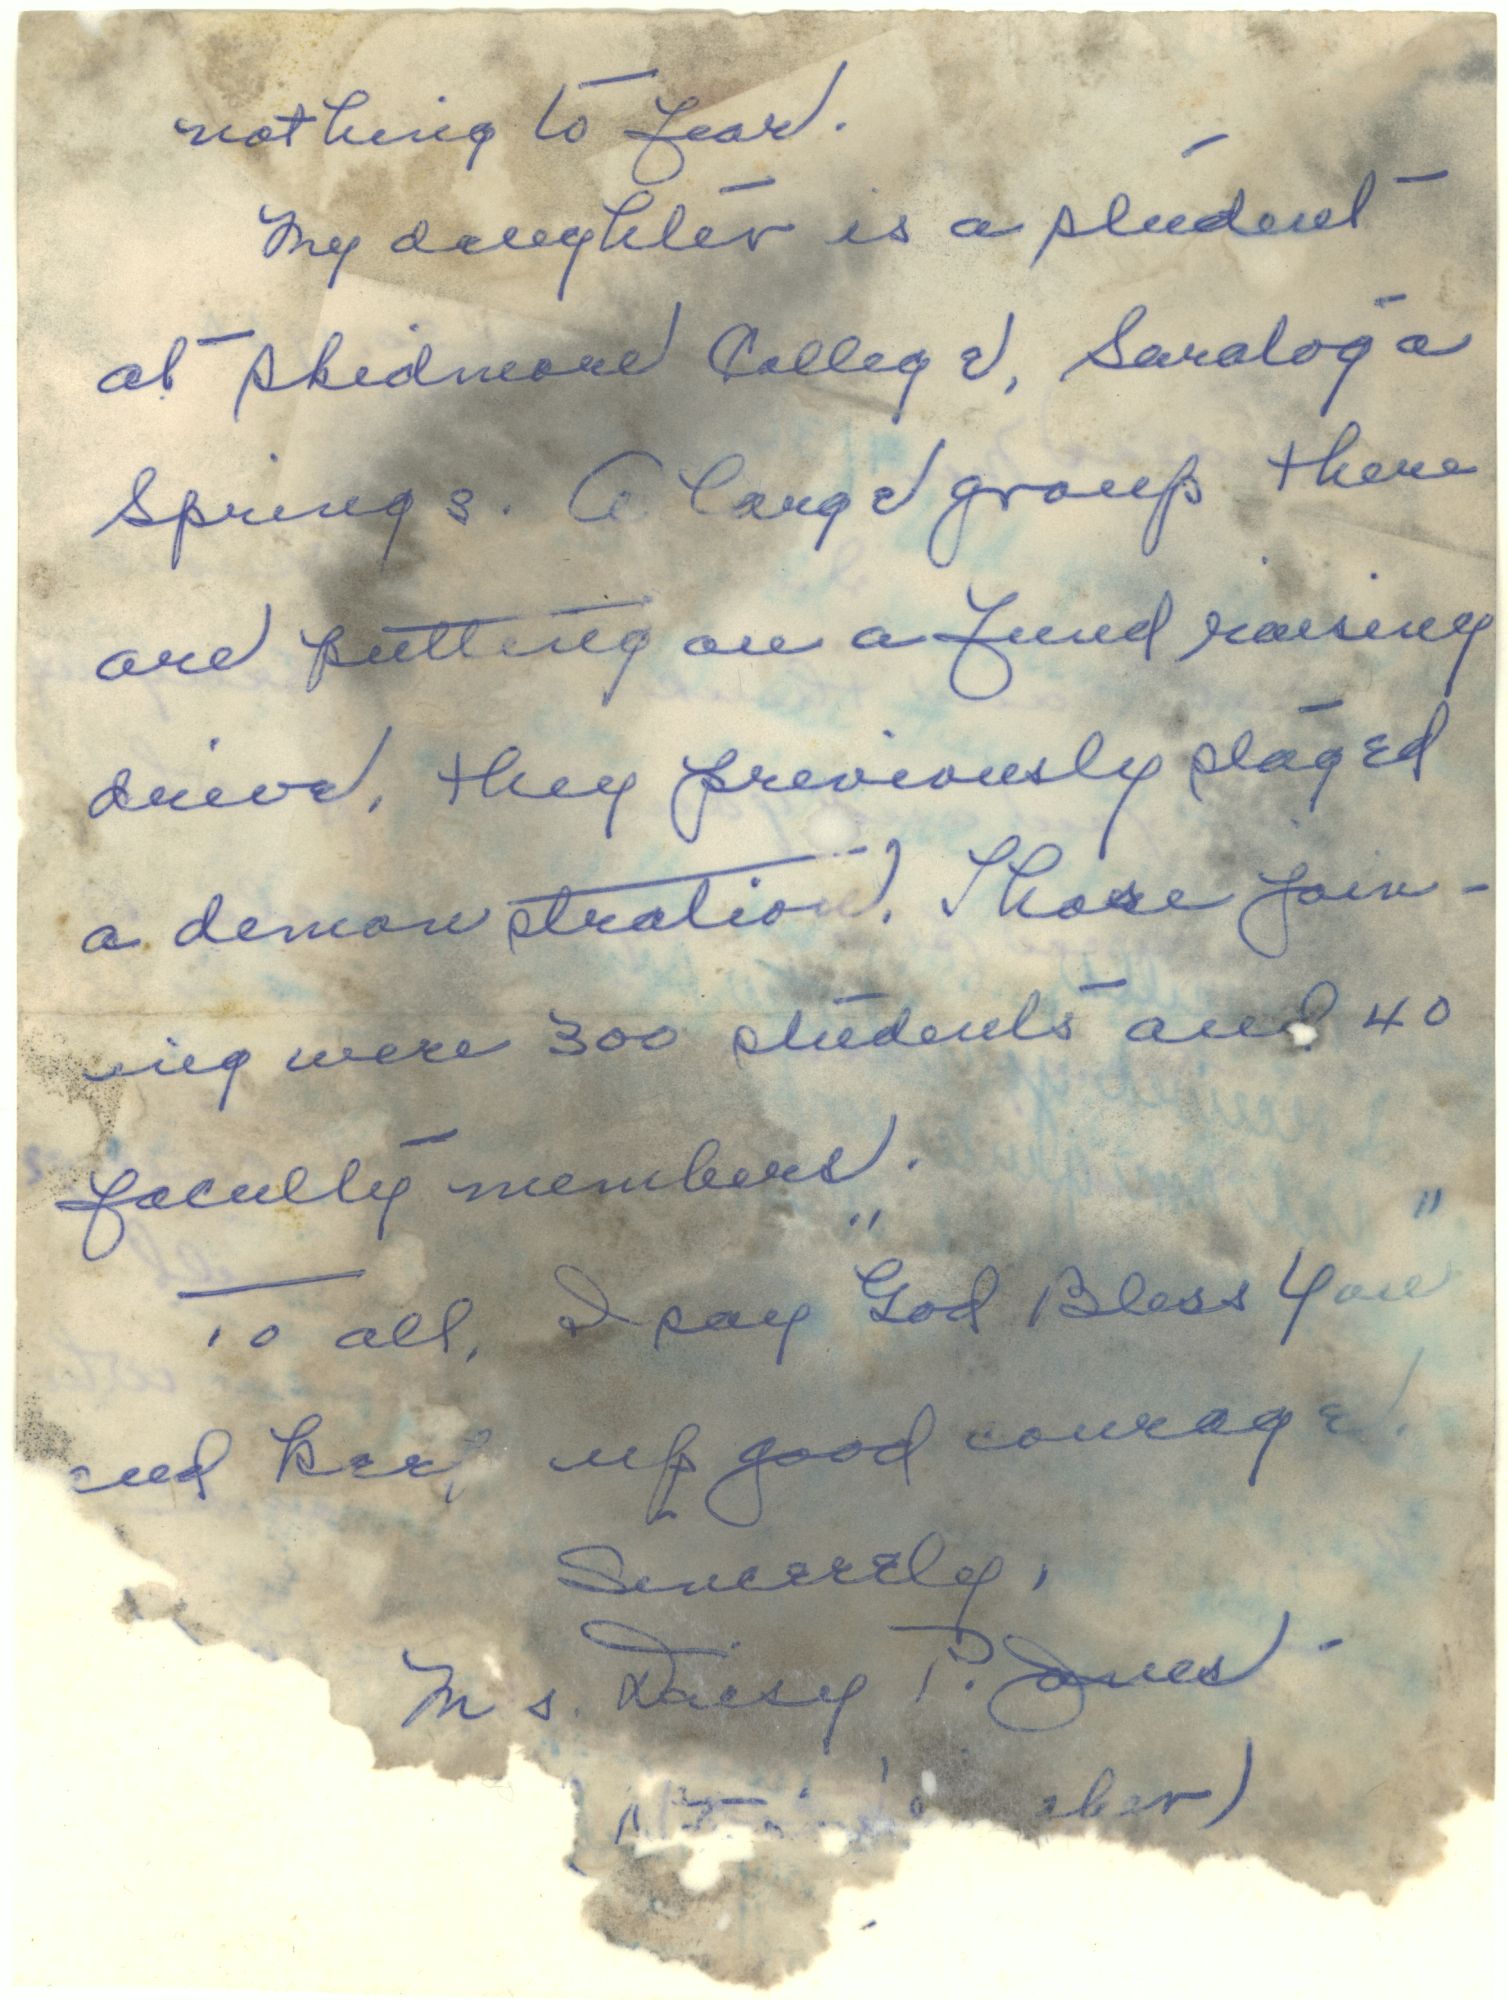 nothing to fear.
My daughter is a student
at Skidmore College, Saratoga
Springs. A large group there
are putting on a fund raising
drive, they previously staged
a demonstration. Those join-
ing were 300 students and 40
faculty members.
To all, I say "God Bless You"
and keep up good courage.
Sincerely,
Ms. Daisy P. Jones